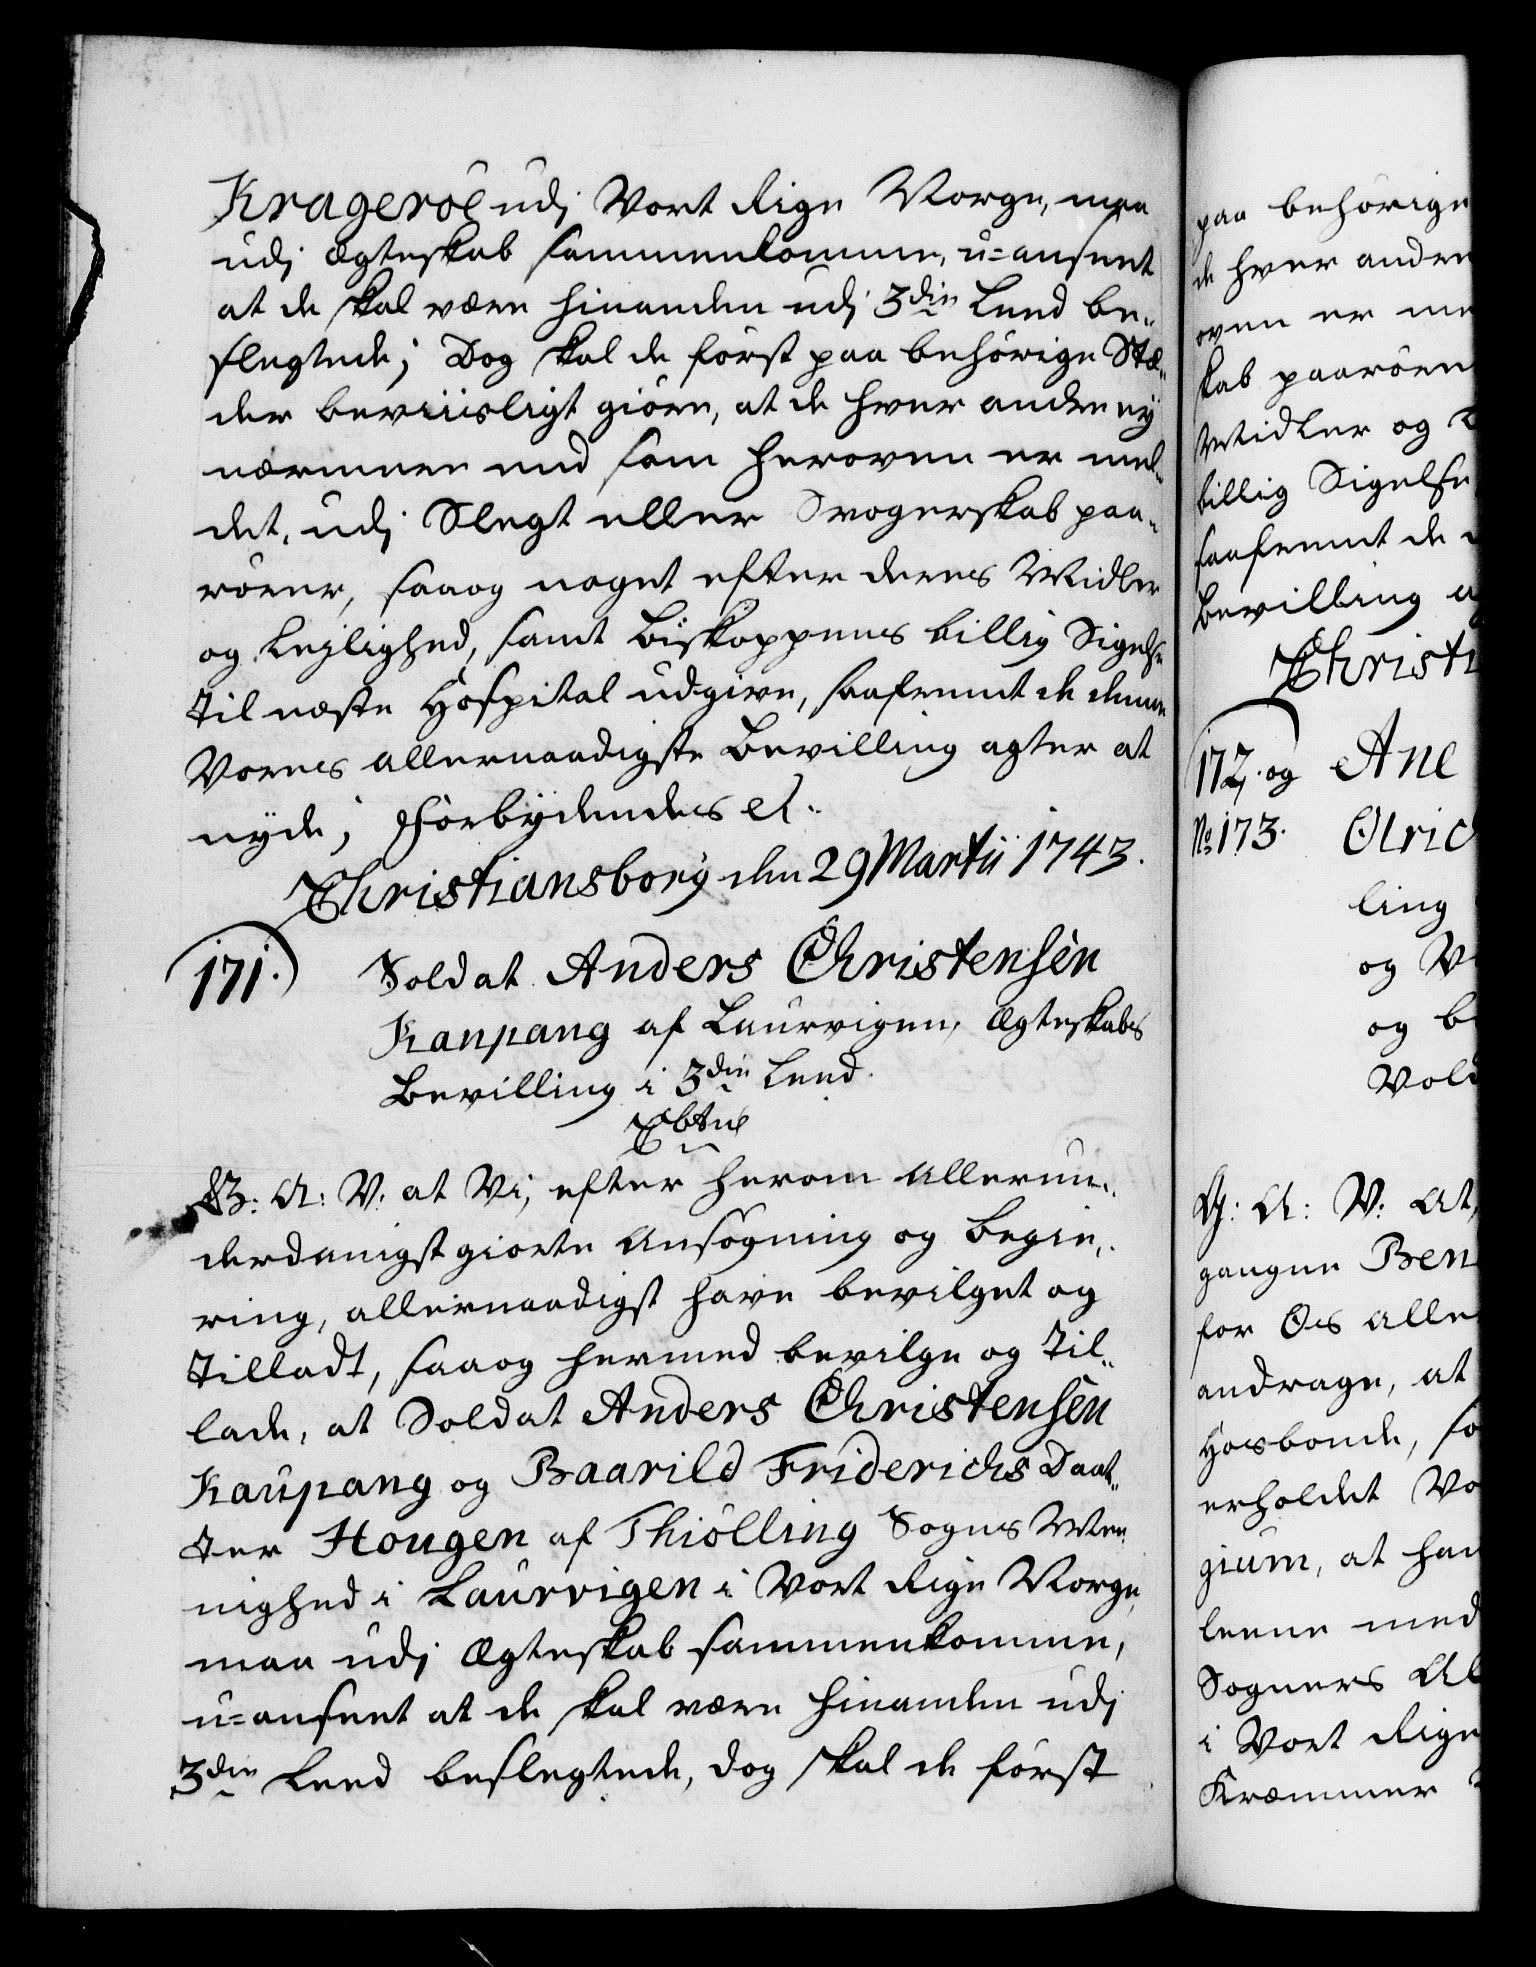 Krageröe udj Vort Rige Norge, maa
udj Ægteskab sammenkomme, u=anseet
at de skal være hinanden udj 3die Leed be„
slegtede; Dog skal de först paa behörige Stæ„
der beviisligt giöre, at de hver andre ej
nærmere end som heroven er mel„
det, udj Slegt eller Svogerskab paa„
rörer, saa og noget efter deres Midler
og Lejlighed, samt Biskoppens billig Sigelse
til næste Hospital udgive, saafremt de denne
Vores allernaadigste Bevilling agter at
nyde; Forbydendes etc.
Christiansborg den 29 Martii 1743.
171. Soldat Anders Christensen
Kaupang af Laurvigen, Ægteskabs
Bevilling i 3die Leed.
G: A: V: at Vi, efter herom allerun„
derdanigst giorte Ansögning og Begie„
ring, allernaadigst have bevilget og
tilladt, saa og hermed bevilge og til„
lade, at Soldat Anders Christensen
Kaupang og Baarild Friderichs Daat„
ter Hougen af Thiölling Sogns Me„
nighed i Laurvigen i Vort Rige Norge,
maa udj Ægteskab sammenkomme,
u=anseet at de skal være hinanden udj
3die Leed beslegtede, dog skal de först
paa behörige
de hver andre
oven er me
skab paarören
Midler og
billig Sigelse
saafremt de
Bevilling
Christi
172. og Ane
No 173. Olric
ling
og V
og b
Vold
G: A: V: At,
gangne Ben
for Os alle
andrage, at
Hosbonde, so
erholdet Vo
gium, at han
leene med
Sogners Al
i Vort Rige
Kræmmer